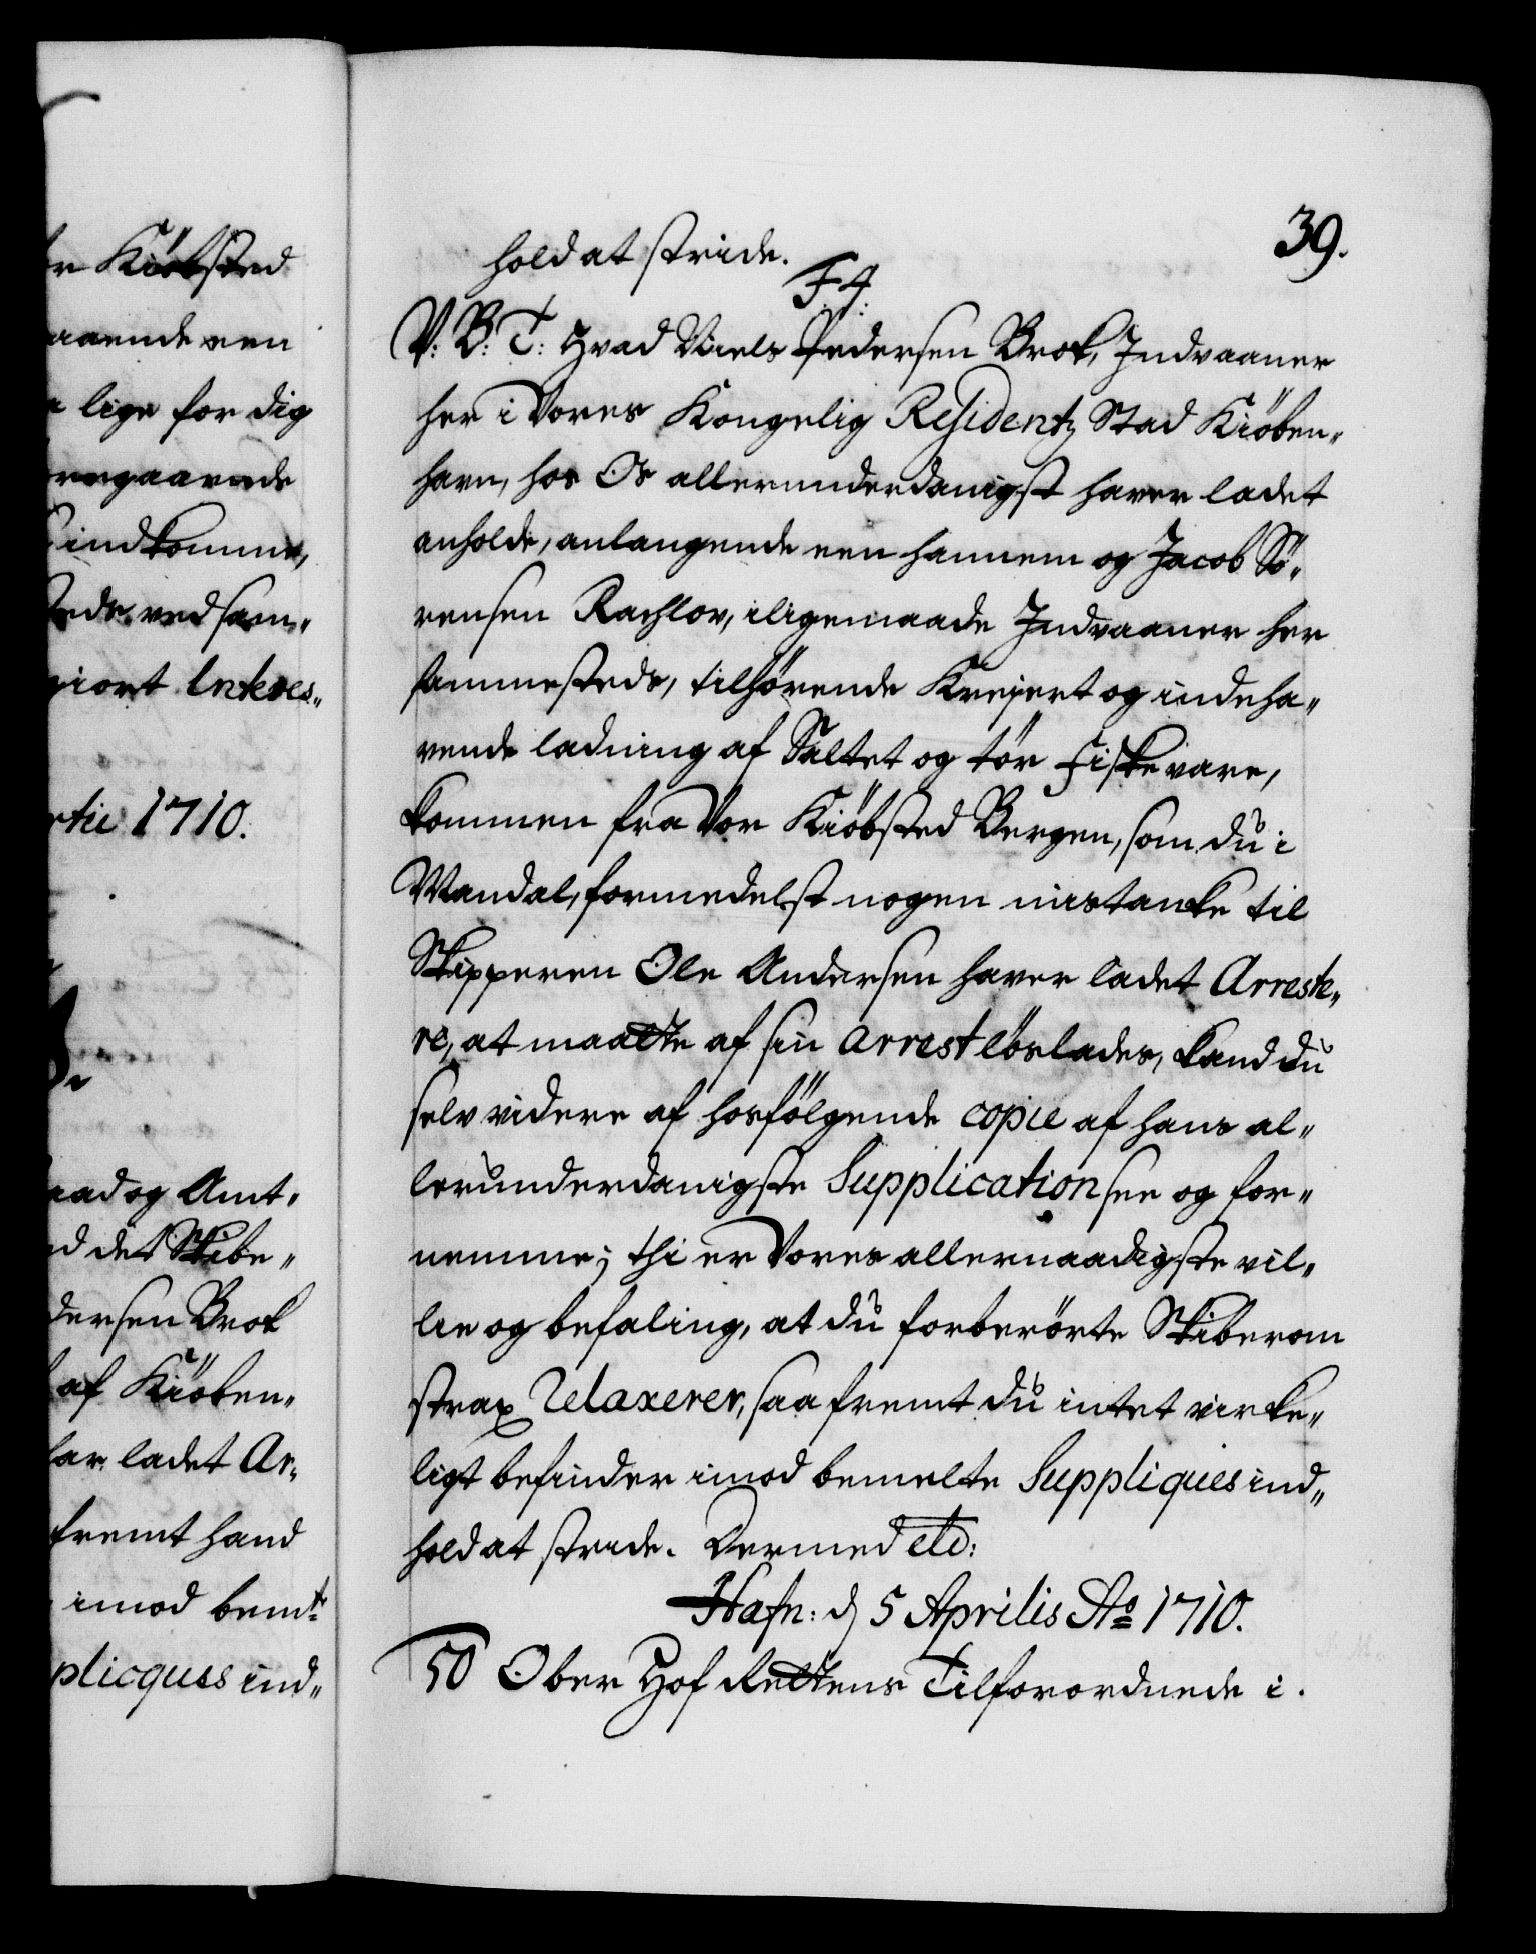 r Kiöbsted
aaende een
lige for dig
regaaende
indkomme,
steds ved sam„
giort Interes„
rtii 1710.
aad og Amt„
d det Skibe„
dersen Brok
af Kiöben„
har ladet Ar„
fremt hand
imod bemt:
plicques ind„
39.
hold at stride.
F4.
V: B: T: Hvad Niels Pedersen Brok, Indvaaner
her i Vores Kongelig Residentz Stad Kiöben„
havn, hos Os allerunderdanigst haver ladet
anholde, anlangende een hannem og Jacob Sö„
rensen Rachlov, iligemaade Indvaaner her
sammesteds, tilhörende Krejert og indeha„
vende ladning af Saltet og tör Fiskevare,
kommen fra Vor Kiöbsted Bergen, som du i
Mandal, formedelst nogen mistanke til
Skipperen Ole Andersen haver ladet Arreste„
re, at maatte af sin arrest löslades, kand du
selv videre af hosfölgende copie af hans al„
lerunderdanigste Supplication see og for„
nemme; thi er Vores allernaadigste vil„
lie og befaling, at du forberörte Skiberom
strax relaxerer, saafremt du intet virke„
ligt befinder imod bemelte Suppliques ind„
hold at stride. Dermed etc:
Hafn: d 5 Aprilis Ao 1710.
50 Ober Hof Rettens Tilforordnede i.